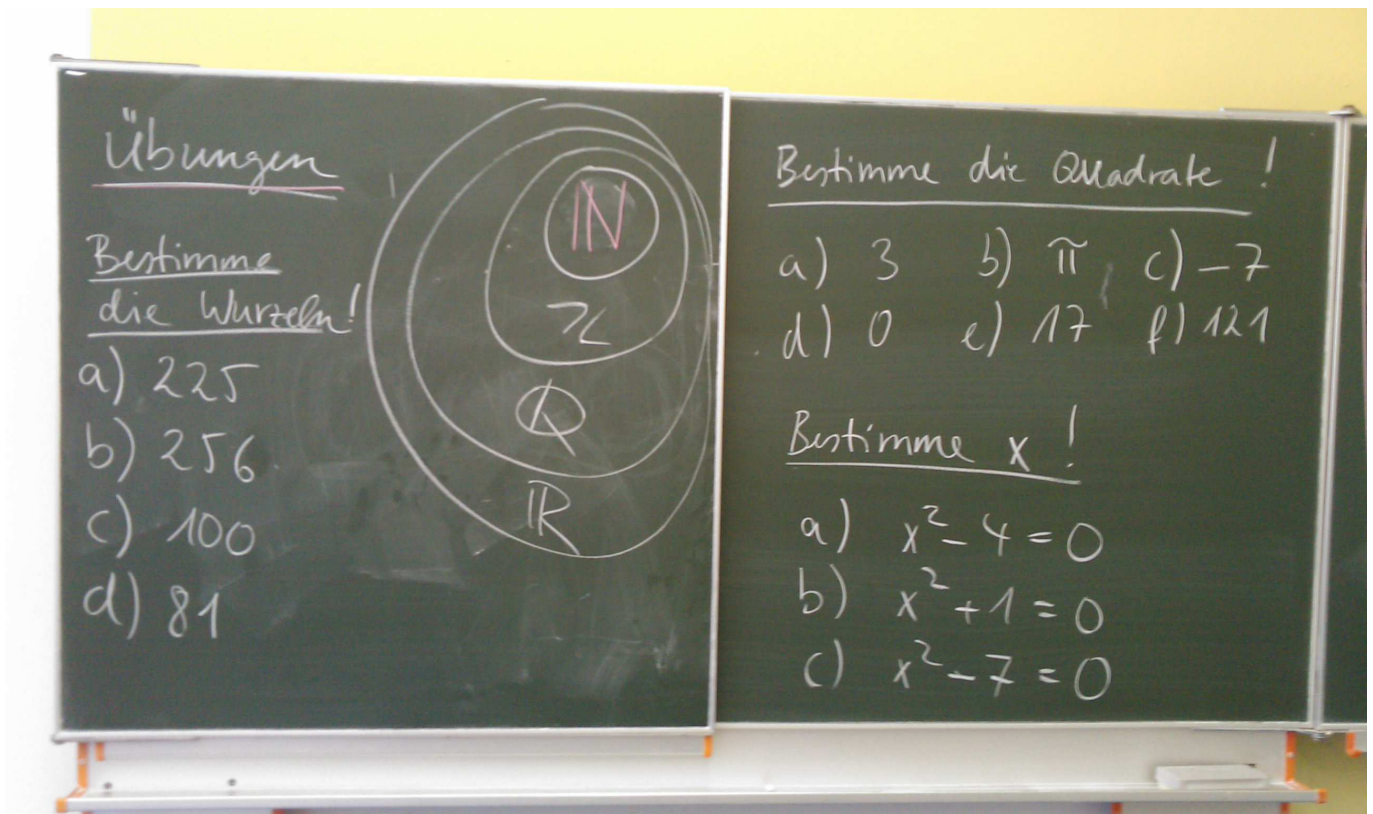 Übungen
Bestimme
die Wurzeln!
a) 225
b) 256
c) 100
d) 81
ℕ
ℤ
ℚ
ℝ
Bestimme die Quadrate !
a) 3 b) π c) -7
d) 0 e) 17 f) 121
Bestimme x !
a) x² - 4 = 0
b) x² + 1 = 0
c) x² - 7 = 0